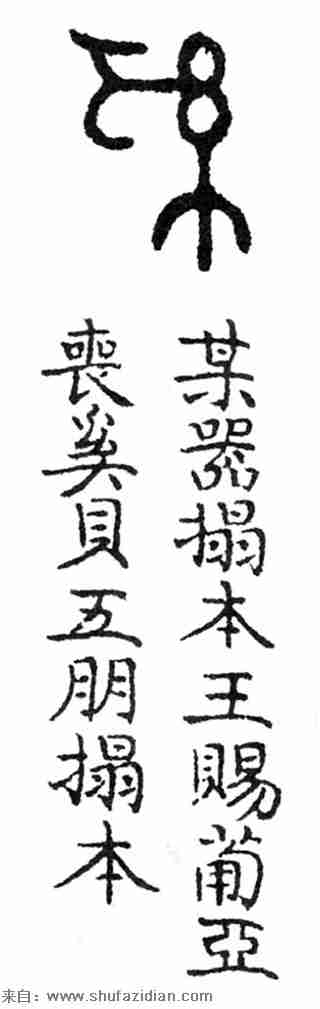 某器搨本王賜葡亞
喪奚貝五朋搨本
来自：www.shufazidian.com